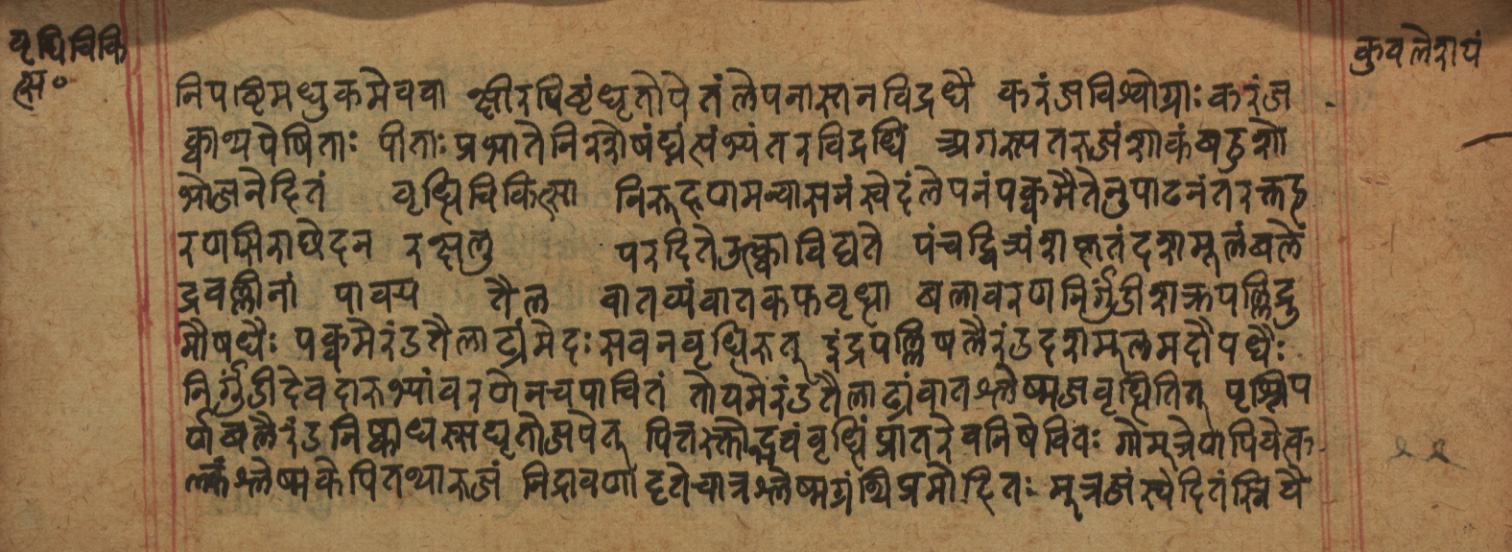 वृद्धिचिकि
त्स॰
कुवलेरायं
निपष्टिमधुकमेववा क्षीरपिष्टंघृतोपेतंलेपनास्तनविद्रधौ करंजविश्योग्राःकरंज
क्वाथपेषिताः पीताःप्रभातेनिश्शेषंघ्नंत्यंभ्यंतरविद्रधिं अगस्त्यतरुजंशाकंबहुशो
भोजनेहितं वृद्धिचिकित्सा निरूहणमन्वासनंस्वेदंलेपनंपक्वमैतेनुपाटनंतरक्तह
रणसिराछेदन रक्षलु परदिते विद्यते पंचद्वित्र्यंशहृतंदशमूलंबलें
द्रवल्लीनां पाचय तैल वातघ्यंवातकफवृध्या बलावरणनिर्गुंडीशक्रपल्लिद्रु
मौषधैः पक्वमेरंडतैलाढ्यंमेदःसवनवृद्धिहृत् इंद्रपल्लिबलैरंडदशमूलमहौषधैः
निर्गुंडीदेवदारुभ्यांवरणेनचपाचितं तोयमेरंडतैलाढ्यंवातश्लेष्मजवृद्धिजित् पृश्निप
र्णीबलैरंडनिष्क्वाथस्सघृतोजयेत् पित्तरक्तोद्भवंवृद्धिंप्रातरेवनिषेवितः गोमूत्रेणपिबेत्क
ल्कंश्लेष्मकेपितथारुजं निद्रावणादृतेचात्रश्लेष्मग्रंथिक्रमोहितः मूत्रजंस्वेदितंस्निग्धै